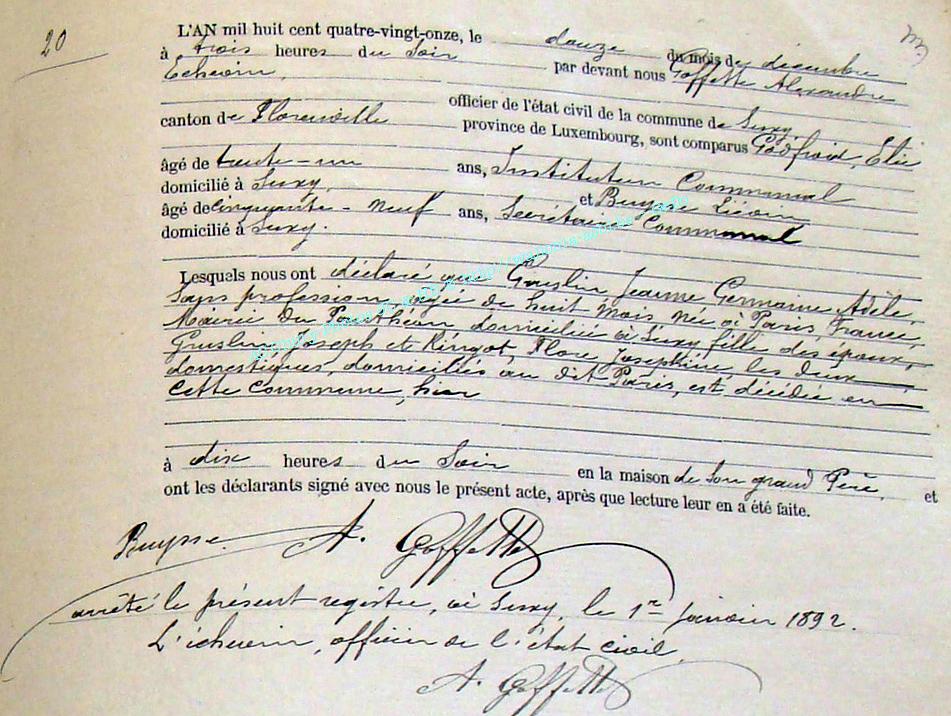 20
L'AN mil huit cent quatre-vingt-onze, le douze du mois de décembre
à trois heures du Soir par devant nous Goffette Alexandre
Echevin,
officier de l'état civil de la commune de Suxy
canton de Florenville province de Luxembourg, sont comparus Godfroid, Elie
âgé de trente-un ans, Instituteur Communal
domicilié à Suxy, et Buysse Liévin
âgé de cinquante-neuf ans, Secrétaire Communal
domicilié à Suxy.
Lesquels nous ont déclaré que Gruslin Jeanne Germaine Adèle,
Sans profession, agée de huit mois née à Paris, France,
Mairie du Panthéon, domiciliée à Suxy fille des époux,
Gruslin Joseph et Ringot, Flore Joséphine, les deux
domestiques, domiciliés au dit Paris, est décédée en
cette Commune, hier
à dix heures du Soir en la maison de Son grand Père, et
ont les déclarants signé avec nous le présent acte, après que lecture leur en a été faite.
Buysse A. Goffette
arrêté le présent registre, à Suxy, le 1er Janvier 1892.
L'échevin, officier de l'état civil
A. Goffette